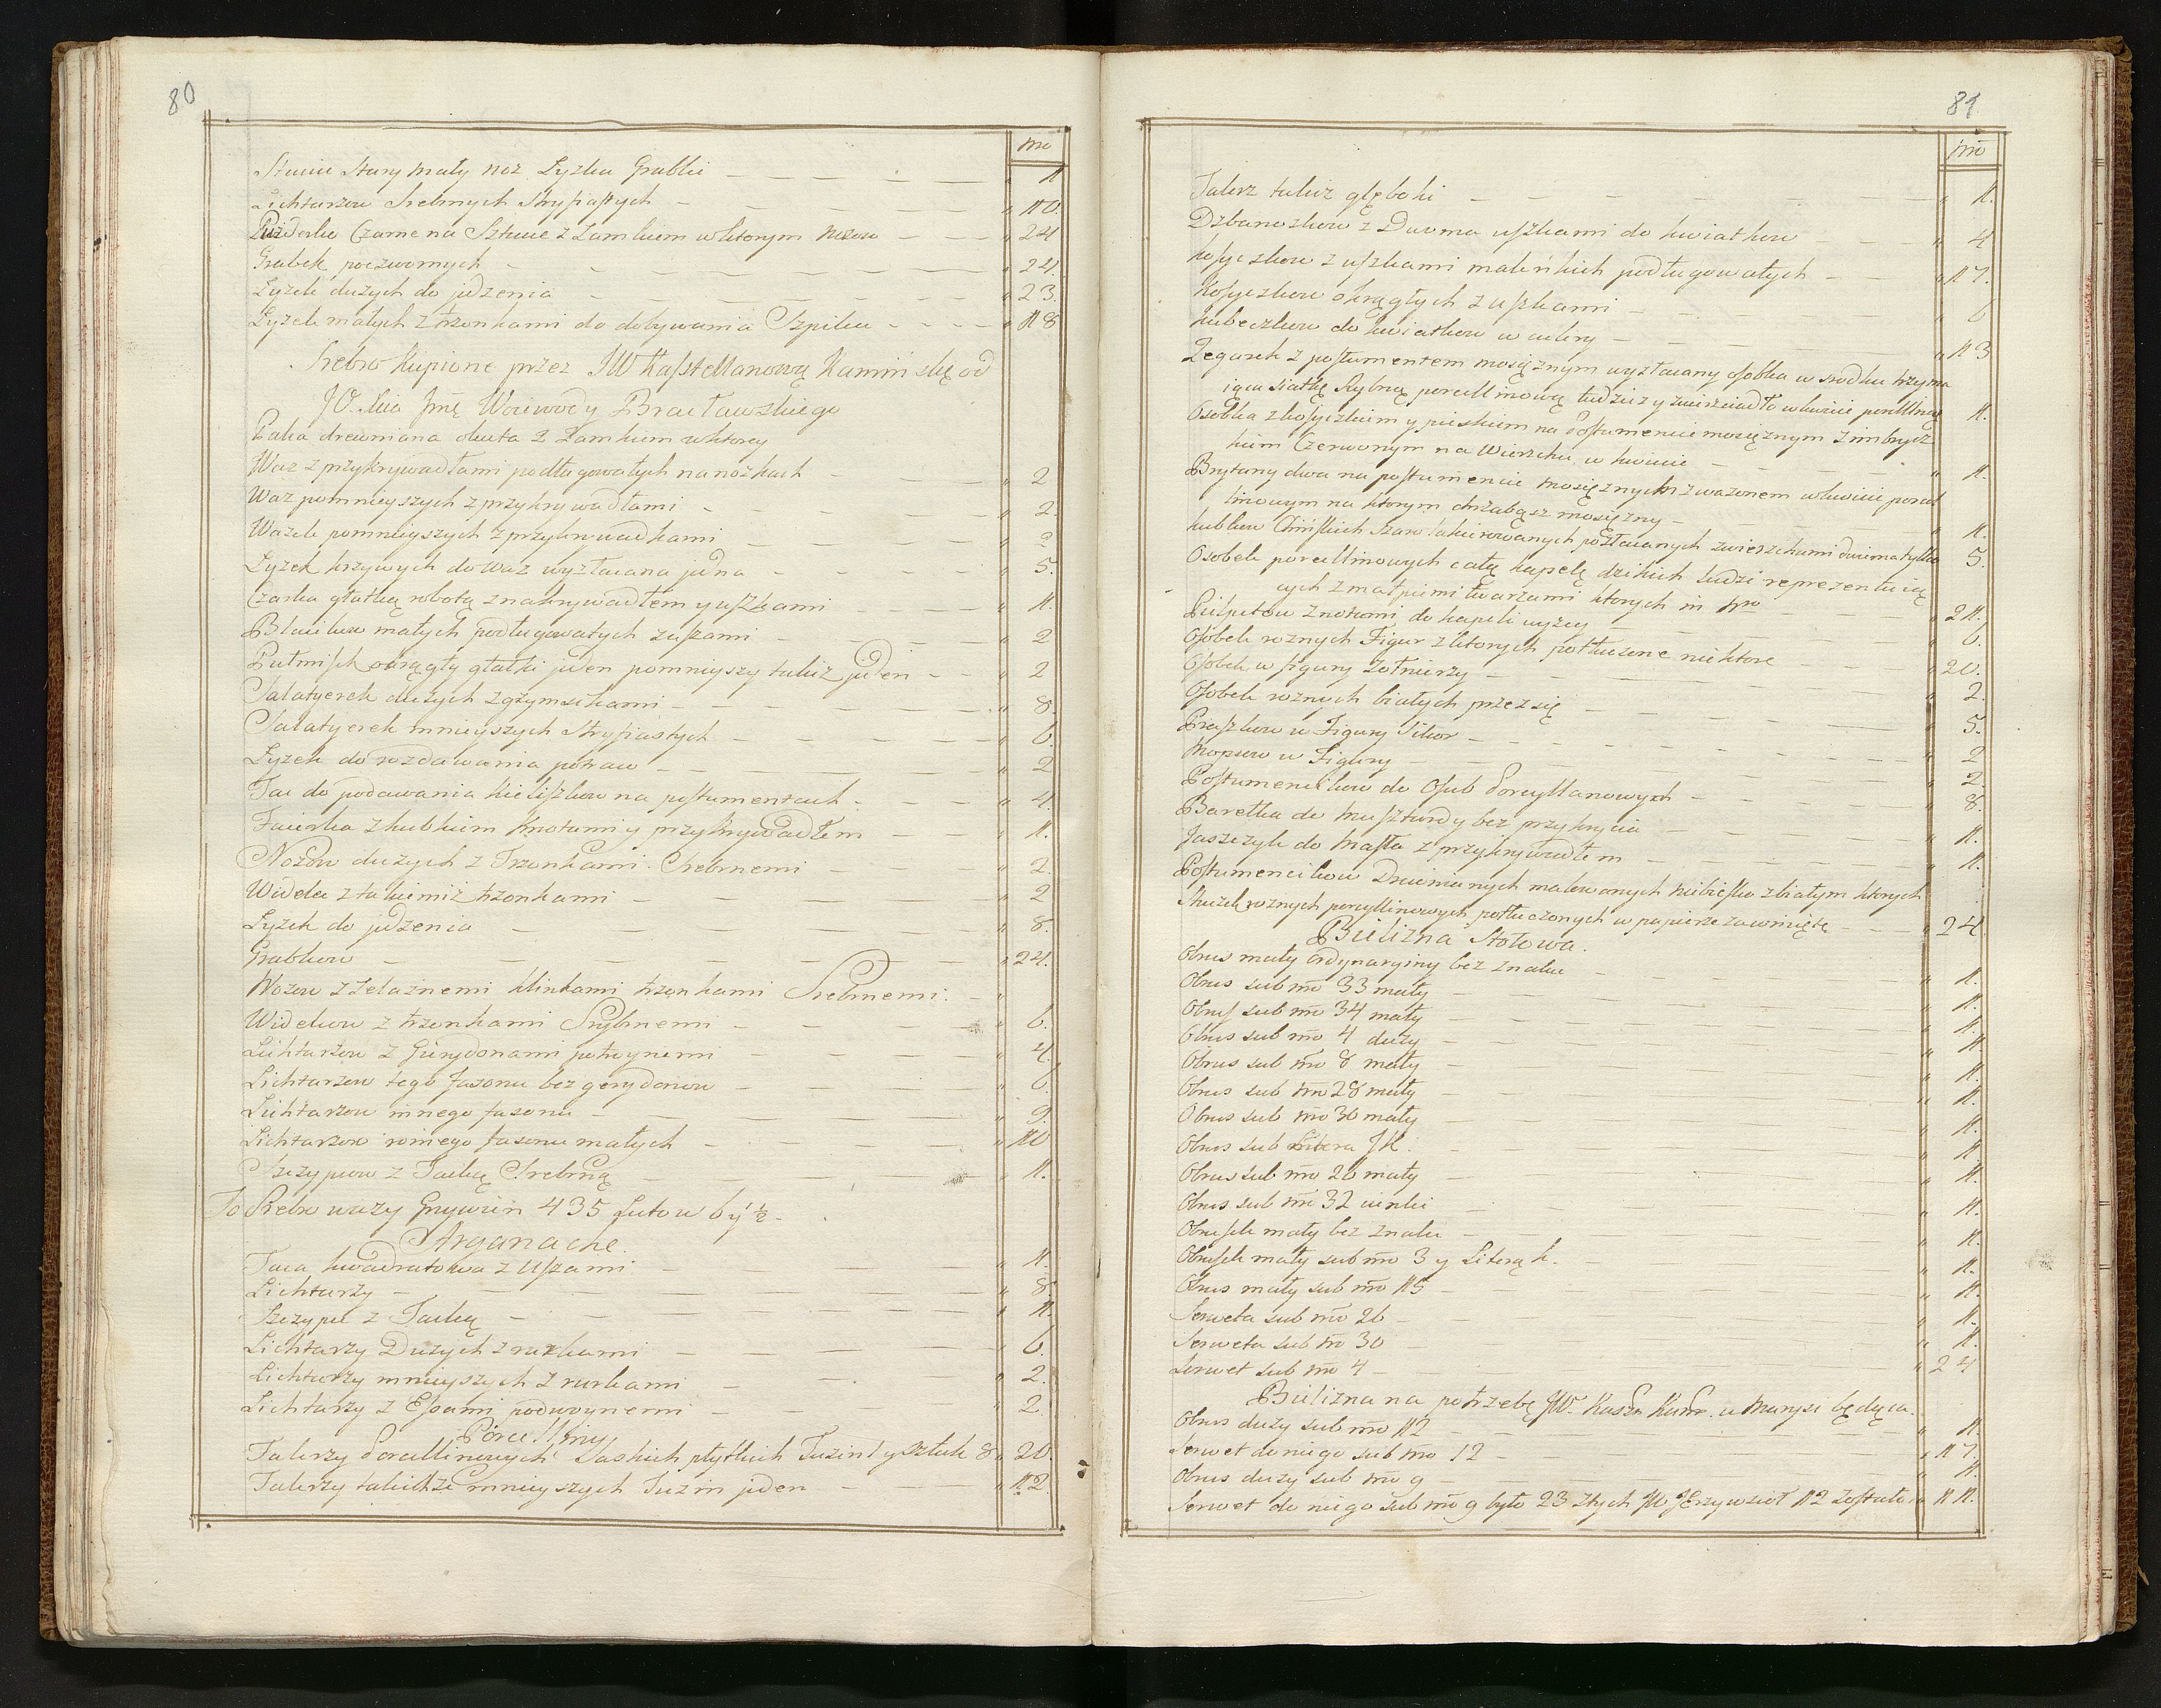 80
nro
Sztuciec stary mały noż Łyzka Grabki — 1
Lichtarzow Srebrnych Strysiastych — 10.
Puzderko Czarne na Sztuce z Zamkiem w ktorym Nozow — 24
Grabek poczwornych — 24.
Łyzek dużych do jedzenia — 23.
Łyzek małych z trzonkami do dobywania Szpiku — 18
Srebro kupione przez JW Kasztellanowę Kamińską od
JO. Xcia Jmę Woiewody Bracławskiego
Paka drewniana okuta z Zamkiem w ktorey
Waz z przykrywadłami podługowatych na nożkach — 2
Waz pomnieyszych z przykrywadłami — 2.
Wazek pomnieyszych z przykrywadkami — 2
Łyzek krzywych do waz wyzłacana jedna — 5.
Czarka gładką robotą z nakrywadłem y uszkami — 1.
Blacikow małych podługowatych z uszami — 2
Pułmisek okrągły gładki jeden pomnieyszy takiż jeden — 2
Salatyerek dużych z gzymsikami — 8.
Salatyerek mnieyszych Strysiastych — 6.
Łyzek do rozdawania potraw — 2
Tac do podawania kieliszkow na postumentach — 4.
Faierka z kubkiem knotami y przykrywadłem — 1.
Nożow dużych z Trzonkami Srebrnemi — 2.
Widelca z takiemiż trzonkami — 2
Łyzek do jedzenia — 8.
Grabkow — 24.
Nozow z Zelaznemi klinkami trzonkami Srebrnemi.
Widelcow z trzonkami Srybrnemi — 6.
Lichtarzow z Girydonami potroynemi — 4.
Lichtarzow tego fasonu bez gerydonow — 6.
Lichtarzow innego fasonu — 9.
Lichtarzow innego fasonu małych — 10
Szczypcow z Tacką Srebrną — 1.
To Srebro wazy Grzywien 435 Lutow 6 y ½.
Arganache.
Taca kwadratowa z Uszami — 1.
Lichtarzy — 8.
Szczypce z Tacką — 1.
Lichtarzy Dużych z rurkami — 6.
Lichtarzy mnieyszych z rurkami — 2.
Lichtarzy z Esami podwoynemi — 2.
Porcelliny
Talerzy Porcellinowych Saskich płytkich Tuzin 1 y sztuk 8 20.
Talerzy takichże mnieyszych Tuzin jeden — 12.
81
nro
Talerz takiż głęboki — 1.
Dzbanuszkow z Dwoma uszkami do kwiatkow — 4
Koszyczkow z uszkami maleńkich podługowatych — 17.
Koszyczkow okrągłych z uszkami — 6
Kubeczkow do kwiatkow w cukry — 13
Zegarek z postumentem mosiężnym wyzłacany osobka w srodku trzyma
iąca siatkę Rybną porcellinową tudziez y zwierciadło w kwiecie porcellinow 1.
Osobka z koszyczkiem y pieskiem na postumencie mosiężnym z imbrycz
kiem Czerwonym na Wierzchu w kwiecie — 1.
Brytany dwa na postumencie mosiężnych z wazonem w kwiecie porcel
linowym na ktorym chrząbąsz mosiężny — 1.
Kubkow Chińskich szaro lakierowanych pozłacanych z wierzchami dwiema tylko 5.
Osobek porcellinowych całą kapelę dzikich ludzi reprezentuią
cych z małpiemi twarzami ktorych in nro — 21.
Pulpitow z notami do kapeli wyzey — 6.
Osobek roznych Figur z ktorych potłuczone niektore — 20.
Osobek w figury Zołnierzy — 2.
Osobek roznych białych przez się — 5.
Ptaszkow w Figury Sikor — 2
Mopsow w Figury — 2.
Postumencikow do Osub Porcyllanowych — 8.
Baretka do Musztardy bez przykrycia — 1.
Faszczyk do Masła z przykrywadłem — 1.
Postumencikow Drewnianych malowanych niebiesko z białym ktorych
Sztuczek roznych porcyllinowych potłuczonych w papierze zawinięte — 24
Bielizna Stołowa.
Obrus mały ordynaryiny bez znaku — 1.
Obrus sub nro 33 mały — 1.
Obrus sub nro 34 mały — 1.
Obrus sub nro 4 duży — 1.
Obrus sub nro 8 mały — 1.
Obrus sub nro 28 mały — 1.
Obrus sub nro 30 mały — 1.
Obrus sub Litera JK. — 1.
Obrus sub nro 26 mały — 1.
Obrus sub nro 32 cienki — 1.
Obrusek mały bez znaku — 1.
Obrusek mały sub nro 3 y Literą k. — 1.
Obrus mały sub nro 15 — 1.
Serweta sub nro 26 — 1.
Serweta sub nro 30 — 1.
Serwet sub nro 4 — 24
Bielizna na potrzebę JW. Kaszn Kamr. u Marysi będąca.
Obrus duży sub nro 12 — 1.
Serwet do niego sub nro 12 — 17.
Obrus duży sub nro 9 — 1.
Serwet do niego sub nro 9 było 23 z tych JW JErzy wzioł 12 zostało 11.